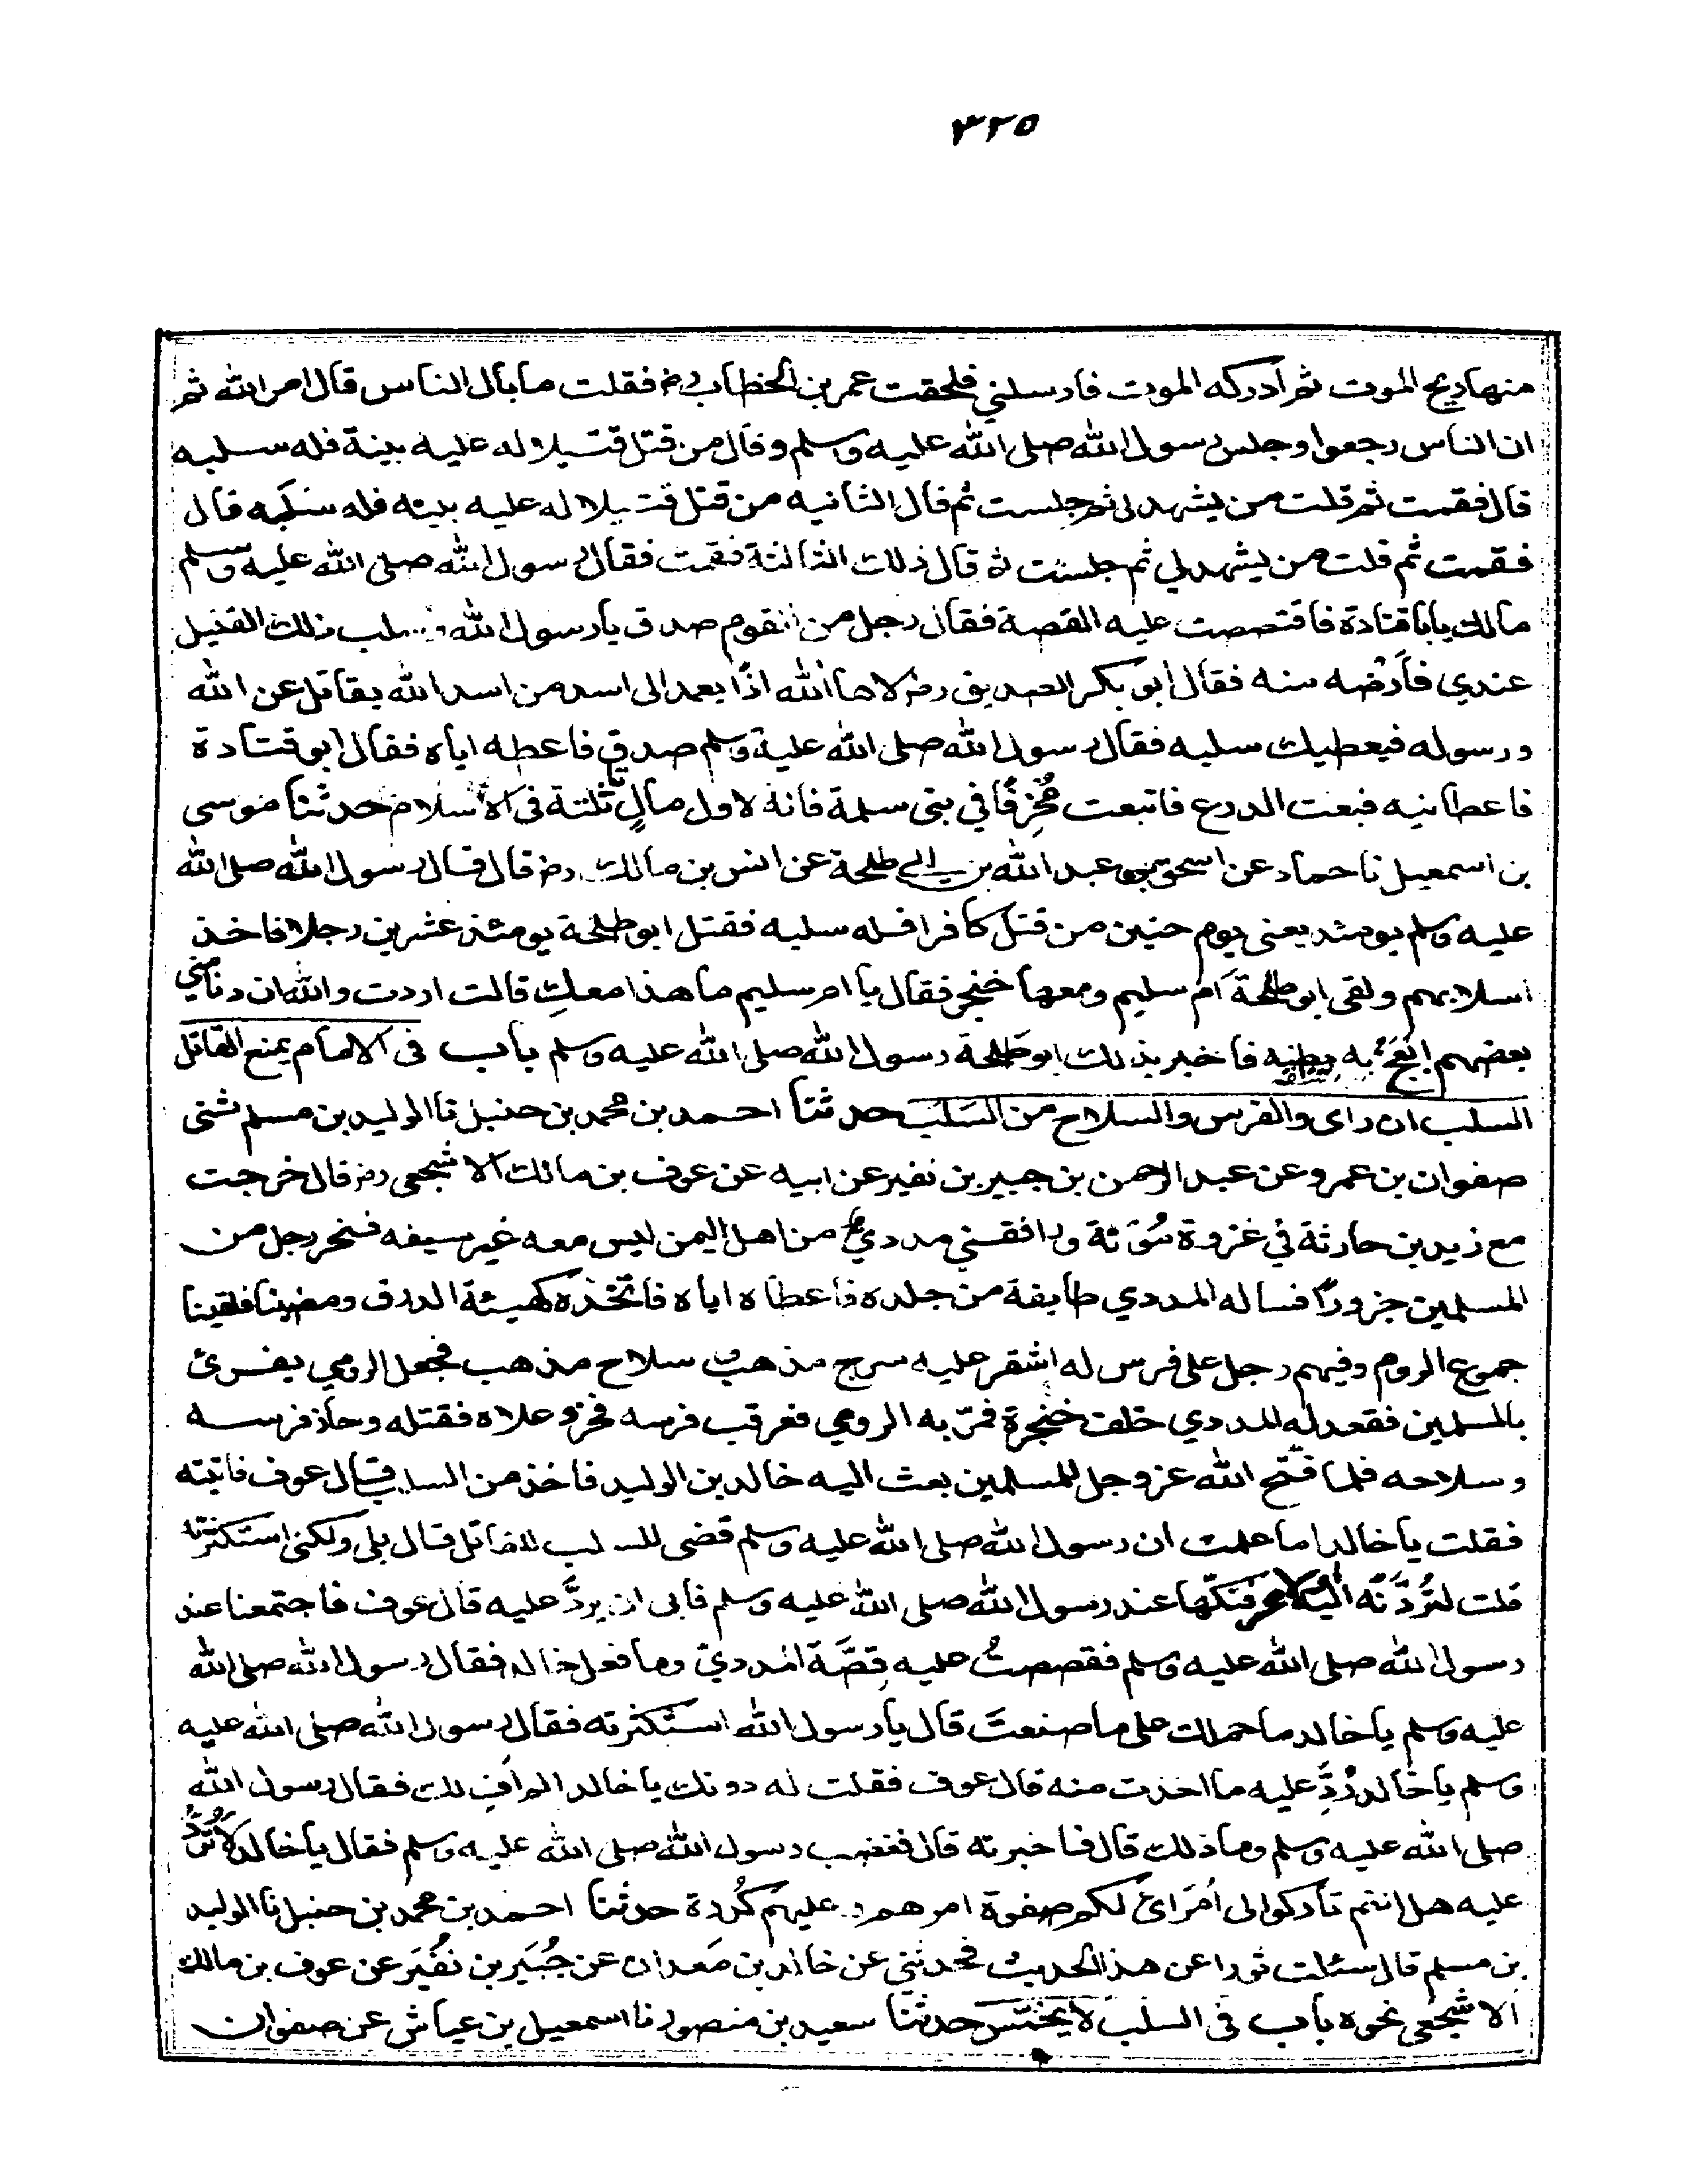 ٣٢٥
منها ريح الموت ثم ادركه الموت فارسلني فلحقت عمر بن الخطاب رض فقلت ما بال الناس قال امر الله ثم
ان الناس رجعوا وجلس رسول الله صلى الله عليه وسلم وقال من قتل قتيلا له عليه بينة فله سلبه
قال فقمت ثم قلت من يشهد لي ثم جلست ثم قال الثانيه من قتل قتيلا له عليه بينه فله سلبه قال
فقمت ثم قلت من يشهد لي ثم جلست ثم قال ذلك الثالثة فقمت فقال رسول الله صلى الله عليه وسلم
مالك يابا قتادة فاقتصصت عليه القصة فقال رجل من القوم صدق يا رسول الله وسلب ذلك القتيل
عندي فأرضه منه فقال أبو بكر الصديق رض لاها الله اذًا يعمد الى اسد من اسد الله يقاتل عن الله
ورسوله فيعطيك سلبه فقال رسول الله صلى الله عليه وسلم صدق فاعطه اياه فقال ابو قتادة
فاعطانيه فبعت الدرع فاتبعت مَخْرِفًا في بني سلمة فانه لاول مالٍ تأثلته في الاسلام حدثنا موسى
بن اسمعيل نا حماد عن اسحق بن عبد الله بن ابي طلحة عن انس بن مالك رض قال قال رسول الله صلى الله
عليه وسلم يومئذ يعني يوم حنين من قتل كافرا فله سلبه فقتل ابو طلحة يومئذ عشرين رجلا فاخذ
اسلابهم ولقى ابو طلحة أم سليم ومعها خنجر فقال يا ام سليم ما هذا معكِ قالت اردت والله ان دنا مني
بعضهم ابعج به بطنه فاخبر بذلك ابو طلحة رسول الله صلى الله عليه وسلم باب في الامام يمنع القاتل
السلب ان راى والفرس والسلاح من السَلَب حدثنا احمد بن محمد بن حنبل نا الوليد بن مسلم ثنى
صفوان بن عمرو عن عبد الرحمن بن جبير بن نفير عن ابيه عن عوف بن مالك الاشجعي رض قال خرجت
مع زيد بن حارثة في غزوة مُؤتة ورافقني مددي من اهل اليمن ليس معه غير سيفه فنحر رجل من
المسلمين جزورًا فساله المددي طايفة من جلده فاعطاه اياه فاتخذه كهيئة الدرق ومضينا فلقينا
جموع الروم وفيهم رجل على فرس له اشقر عليه سرج مذهب وسلاح مذهب فجعل الرومي يفرئ
بالمسلمين فقعد له المددي خلف فمرّ به الرومي فعرقب فرسه فخر وعلاه فقتله وحاز فرسه
وسلاحه فلما فتح الله عز وجل للمسلمين بعث اليه خالد بن الوليد فاخذ من السلب قال عوف فاتيته
فقلت يا خالد اما علمت ان رسول الله صلى الله عليه وسلم قضى للسلب للقاتل قال بلى ولكني استكثرته
قلت لتَرُدَّنَّه اليه او لاعرفنكها عند رسول الله صلى الله عليه وسلم فابى ان يردَّ عليه قال عوف فاجتمعنا عند
رسول الله صلى الله عليه وسلم فقصصتُ عليه قِصَّة المددي وما فعل خالد فقال رسول الله صلى الله
عليه وسلم يا خالد ما حملك على ما صنعتَ قال يا رسول الله استكثرته فقال رسول الله صلى الله عليه
وسلم يا خالد رُدَّ عليه ما اخذت منه قال عوف فقلت له دونك يا خالد الم افِ لك فقال رسول الله
صلى الله عليه وسلم وما ذلك قال فاخبرته قال فغضب رسول الله صلى الله عليه وسلم فقال يا خالد لا تَرُدَّ
عليه هل انتم تاركوا لى اُمَرائ لكم صفوة امرهم وعليهم كُدرة حدثنا احمد بن محمد بن حنبل نا الوليد
بن مسلم قال سئلت ثورا عن هذا الحديث فحدثني عن خالد بن معدان عن جُبَير بن نُفَيَر عن عوف بن مالك
الاشجعي نحوه باب في السلب لا يخمّس حدثنا سعيد بن منصور نا اسمعيل بن عياش عن صفوان